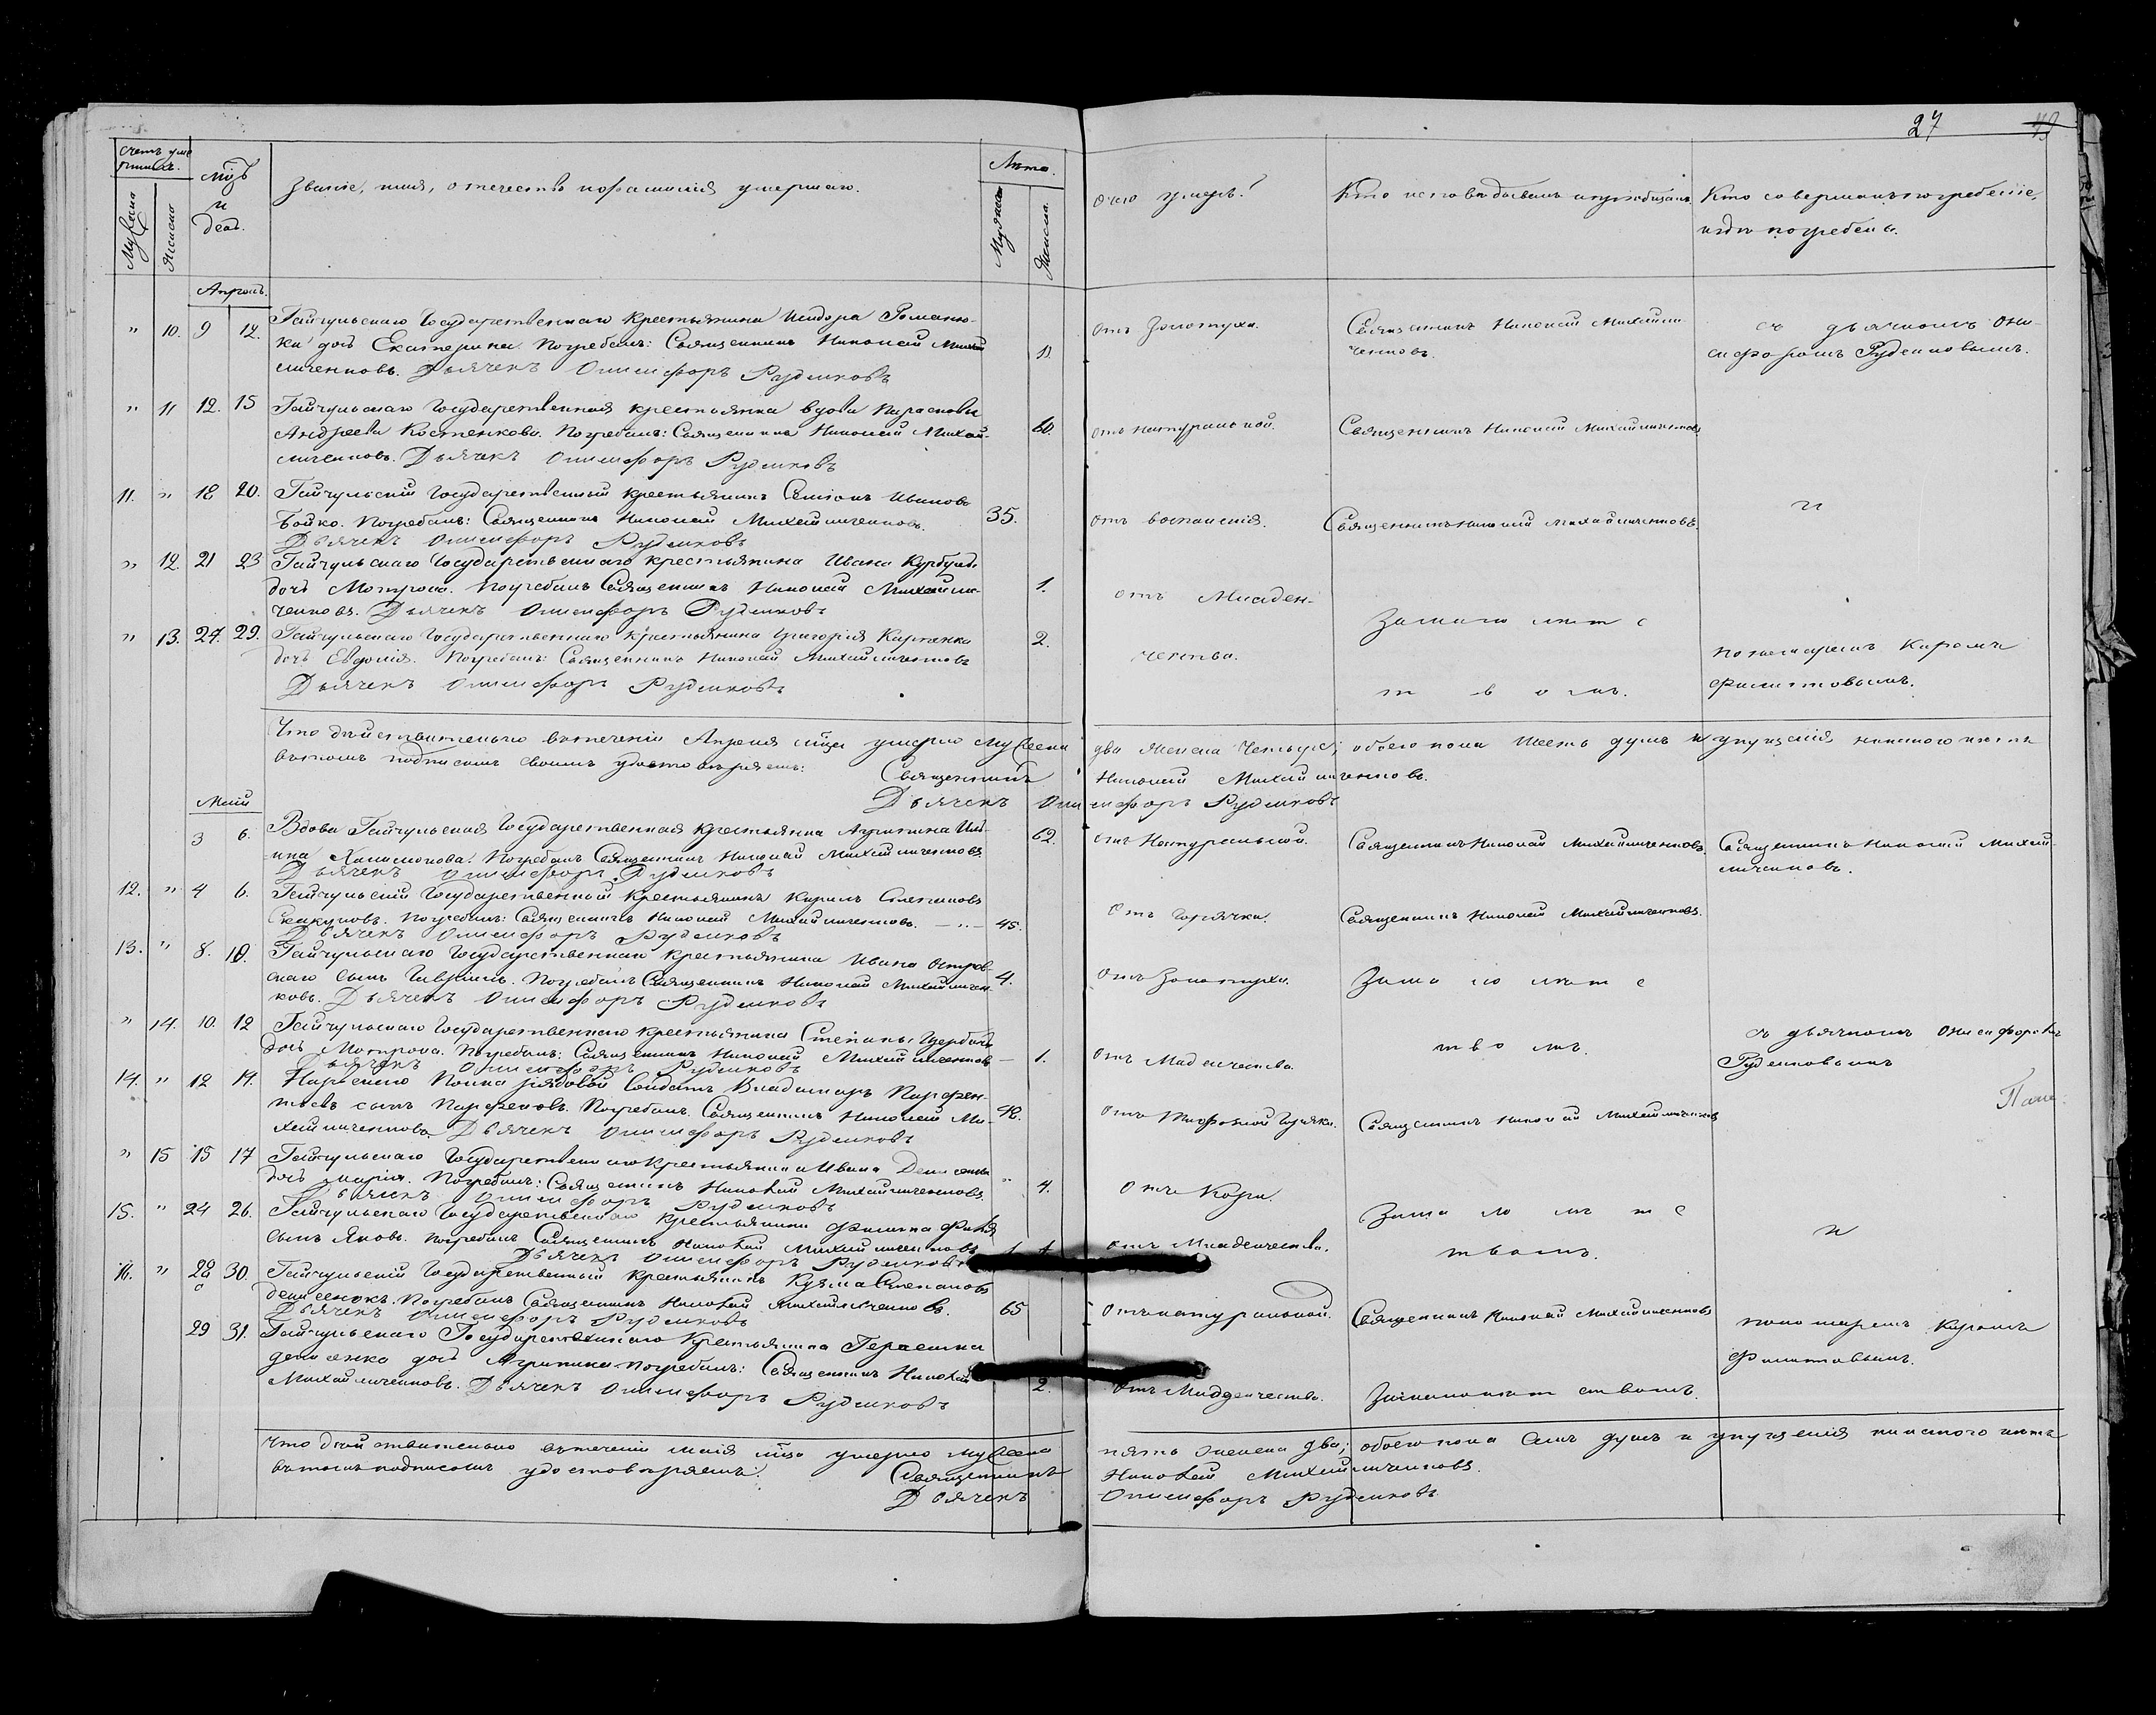 27
Счетъ уме
ршихъ.
Мужеска
Женска
Мцъ
и
день.
Званіе, имя, отчество и фамилія умершаго.
Лѣта.
Мужеска
Женска.
Отчего умеръ?
Кто исповѣдывалъ и пріобщалъ.
Кто совершалъ погребеніе,
и гдѣ погребены.
Апрѣль.
" 10. 9 12. Гайчульскаго Государственнаго крестьянина Исидора Романю-
ка дочь Екатерина. Погребалъ: Священникъ Николай Михай
личенковъ. Дьячекъ Онисифоръ Руденковъ
11.
отъ Золотухи.
Священникъ Николай Михайли-
ченковъ.
съ дьячкомъ Они-
сифоромъ Руденковымъ.
" 11 12. 15 Гайчульская Государственная крестьянка вдова Параскева
Андреева Костенкова. Погребалъ: Священникъ Николай Михай-
личенковъ. Дьячекъ Онисифоръ Руденковъ
60.
отъ натуральной.
Священникъ Николай Михайличенковъ
11. " 18 20. Гайчульскій Государственный крестьянинъ Симеонъ Ивановъ
Бойко. Погребалъ: Священникъ Николай Михайличенковъ.
Дьячекъ Онисифоръ Руденковъ
35.
отъ воспаленія.
Священникъ Николай Михайличенковъ.
и
" 12. 21 23 Гайчульскаго Государственнаго крестьянина Ивана
дочь Мотрона. Погребалъ Священникъ Николай Михайли-
ченковъ. Дьячекъ Онисифоръ Руденковъ
1.
отъ Младен-
За мало лѣт с
" 13. 27. 29. Гайчульскаго Государственнаго крестьянина Григорія Карпенка
дочь Евдокія. Погребалъ: Священникъ Николай Михайличенковъ
Дьячекъ Онисифоръ Руденковъ
2.
чества.
т в о мъ.
пономаремъ Киромъ
Филиповымъ.
Что дѣйствительно втеченіи Апреля мца умерло Мужеска два Женска Четыре; обоего пола Шесть душъ и упущенія никакого нѣтъ
вътомъ подписомъ своимъ удостовѣряемъ: Священникъ Николай Михайличенковъ.
Дьячекъ Онисифоръ Руденковъ
Май
3 6. Вдова Гайчульская Государственная крестьянка Агрипина Иль-
ина Погребалъ Священникъ Николай Михайличенковъ
Дьячекъ Онисифоръ Руденковъ
62.
отъ Натуральной.
Священникъ Николай Михайличенковъ.
Священникъ Николай Михай-
личенковъ.
12. " 4 6. Гайчульскій Государственный крестьянинъ Кирилъ Степановъ
Скакуновъ. Погребалъ: Священникъ Николай Михайличенковъ. — " — 45.
Дьячекъ Онисифоръ Руденковъ
Отъ Горячки.
Священникъ Николай Михайличенковъ.
13. " 8. 10. Гайчульскаго Государственнаго крестьянина Ивана Остров-
скаго сынъ Гавріилъ. Погребалъ Священникъ Николай Михайличен-
ковъ. Дьячекъ Онисифоръ Руденковъ
4.
Отъ Золотухи.
За ма ло лѣт с
" 14. 10. 12 Гайчульскаго Государственнаго крестьянина Степана Щербины
дочь Мотрона. Погребалъ: Священникъ Николай Михайличенковъ —
Дьячекъ Онисифоръ Руденковъ
1.
Отъ Младенчества.
т в о мъ.
съ дьячкомъ Онисифоромъ
Руденковымъ
14. " 12 14. Полка рядовой Солдатъ Владимиръ Парфен-
тьевъ сынъ Парфеновъ. Погребалъ. Священникъ Николай Ми-
хайличенковъ. Дьячекъ Онисифоръ Руденковъ
42.
Отъ Тифозной Горячки.
Священникъ Николай Михайличенковъ
" 15 15 17 Гайчульскаго Государственнаго крестьянина Ивана Денисенка
дочь Марія. Погребалъ: Священникъ Николай Михайличенковъ.
Дьячекъ Онисифоръ Руденковъ
" 4.
Отъ Кори.
За ма ло лѣ т с
15. " 24 26. Гайчульскаго Государственнаго крестьянина Филипа
сынъ Яковъ. Погребалъ Священникъ Николай Михайличенковъ
Дьячекъ Онисифоръ Руденковъ
Отъ Младенчества.
твомъ.
и
16. " 28 30. Гайчульскій Государственный крестьянинъ Кузма Степановъ
Денисенокъ. Погребалъ Священникъ Николай Михайличенковъ.
Дьячекъ Онисифоръ Руденковъ
65
Отъ натуральной.
Священникъ Николай Михайличенковъ
пономаремъ Киромъ
Филиповымъ.
29 31. Гайчульскаго Государственнаго Крестьянина Герасима
Денисенка дочь Агрипина погребалъ: Священникъ Николай
Михайличенковъ. Дьячекъ Онисифоръ Руденковъ
2.
Отъ Младенчества.
За малолѣтствомъ.
Что дѣйствительно втеченіи Маія мца умерло Мужеска пять Женска два; обоего пола Семъ душъ и упущенія никакого нѣтъ
вътомъ подписомъ удостовѣряемъ: Священникъ Николай Михайличенковъ.
Дьячекъ Онисифоръ Руденковъ